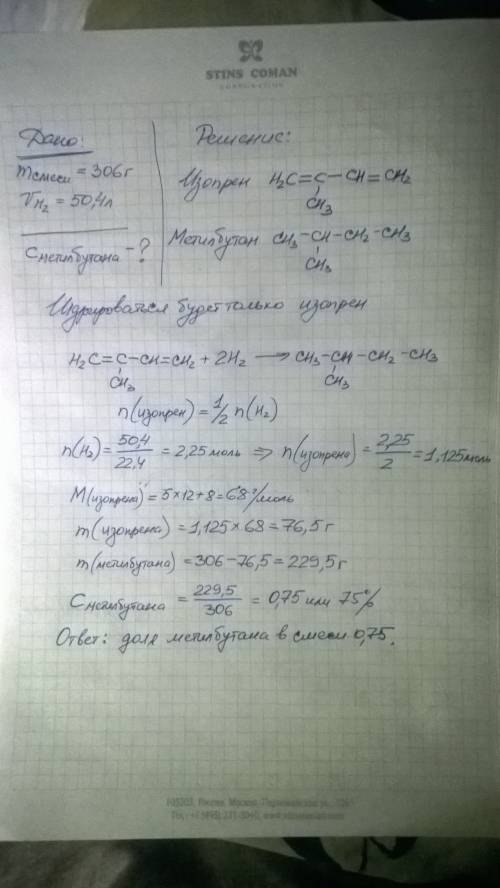 STINS COMAN
CORPORATION
Дано:
mсмеси = 306 г
VH2 = 50,4 л
Cметилбутана - ?
Решение:
Изопрен H2C=C-CH=CH2
CH3
Метилбутан CH3-CH-CH2-CH3
CH3
Гидрироваться будет только изопрен
H2C=C-CH=CH2 + 2H2 → CH3-CH-CH2-CH3
CH3 CH3
n(изопрен) = 1/2 n(H2)
n(H2) = 50,4/22,4 = 2,25 моль ⇒ n(изопрена) = 2,25/2 = 1,125 моль
M(изопрена) = 5×12+8 = 68 г/моль
m(изопрена) = 1,125×68 = 76,5 г
m(метилбутана) = 306-76,5 = 229,5 г
Cметилбутана = 229,5/306 = 0,75 или 75%
Ответ: доля метилбутана в смеси 0,75.
Россия, Москва,